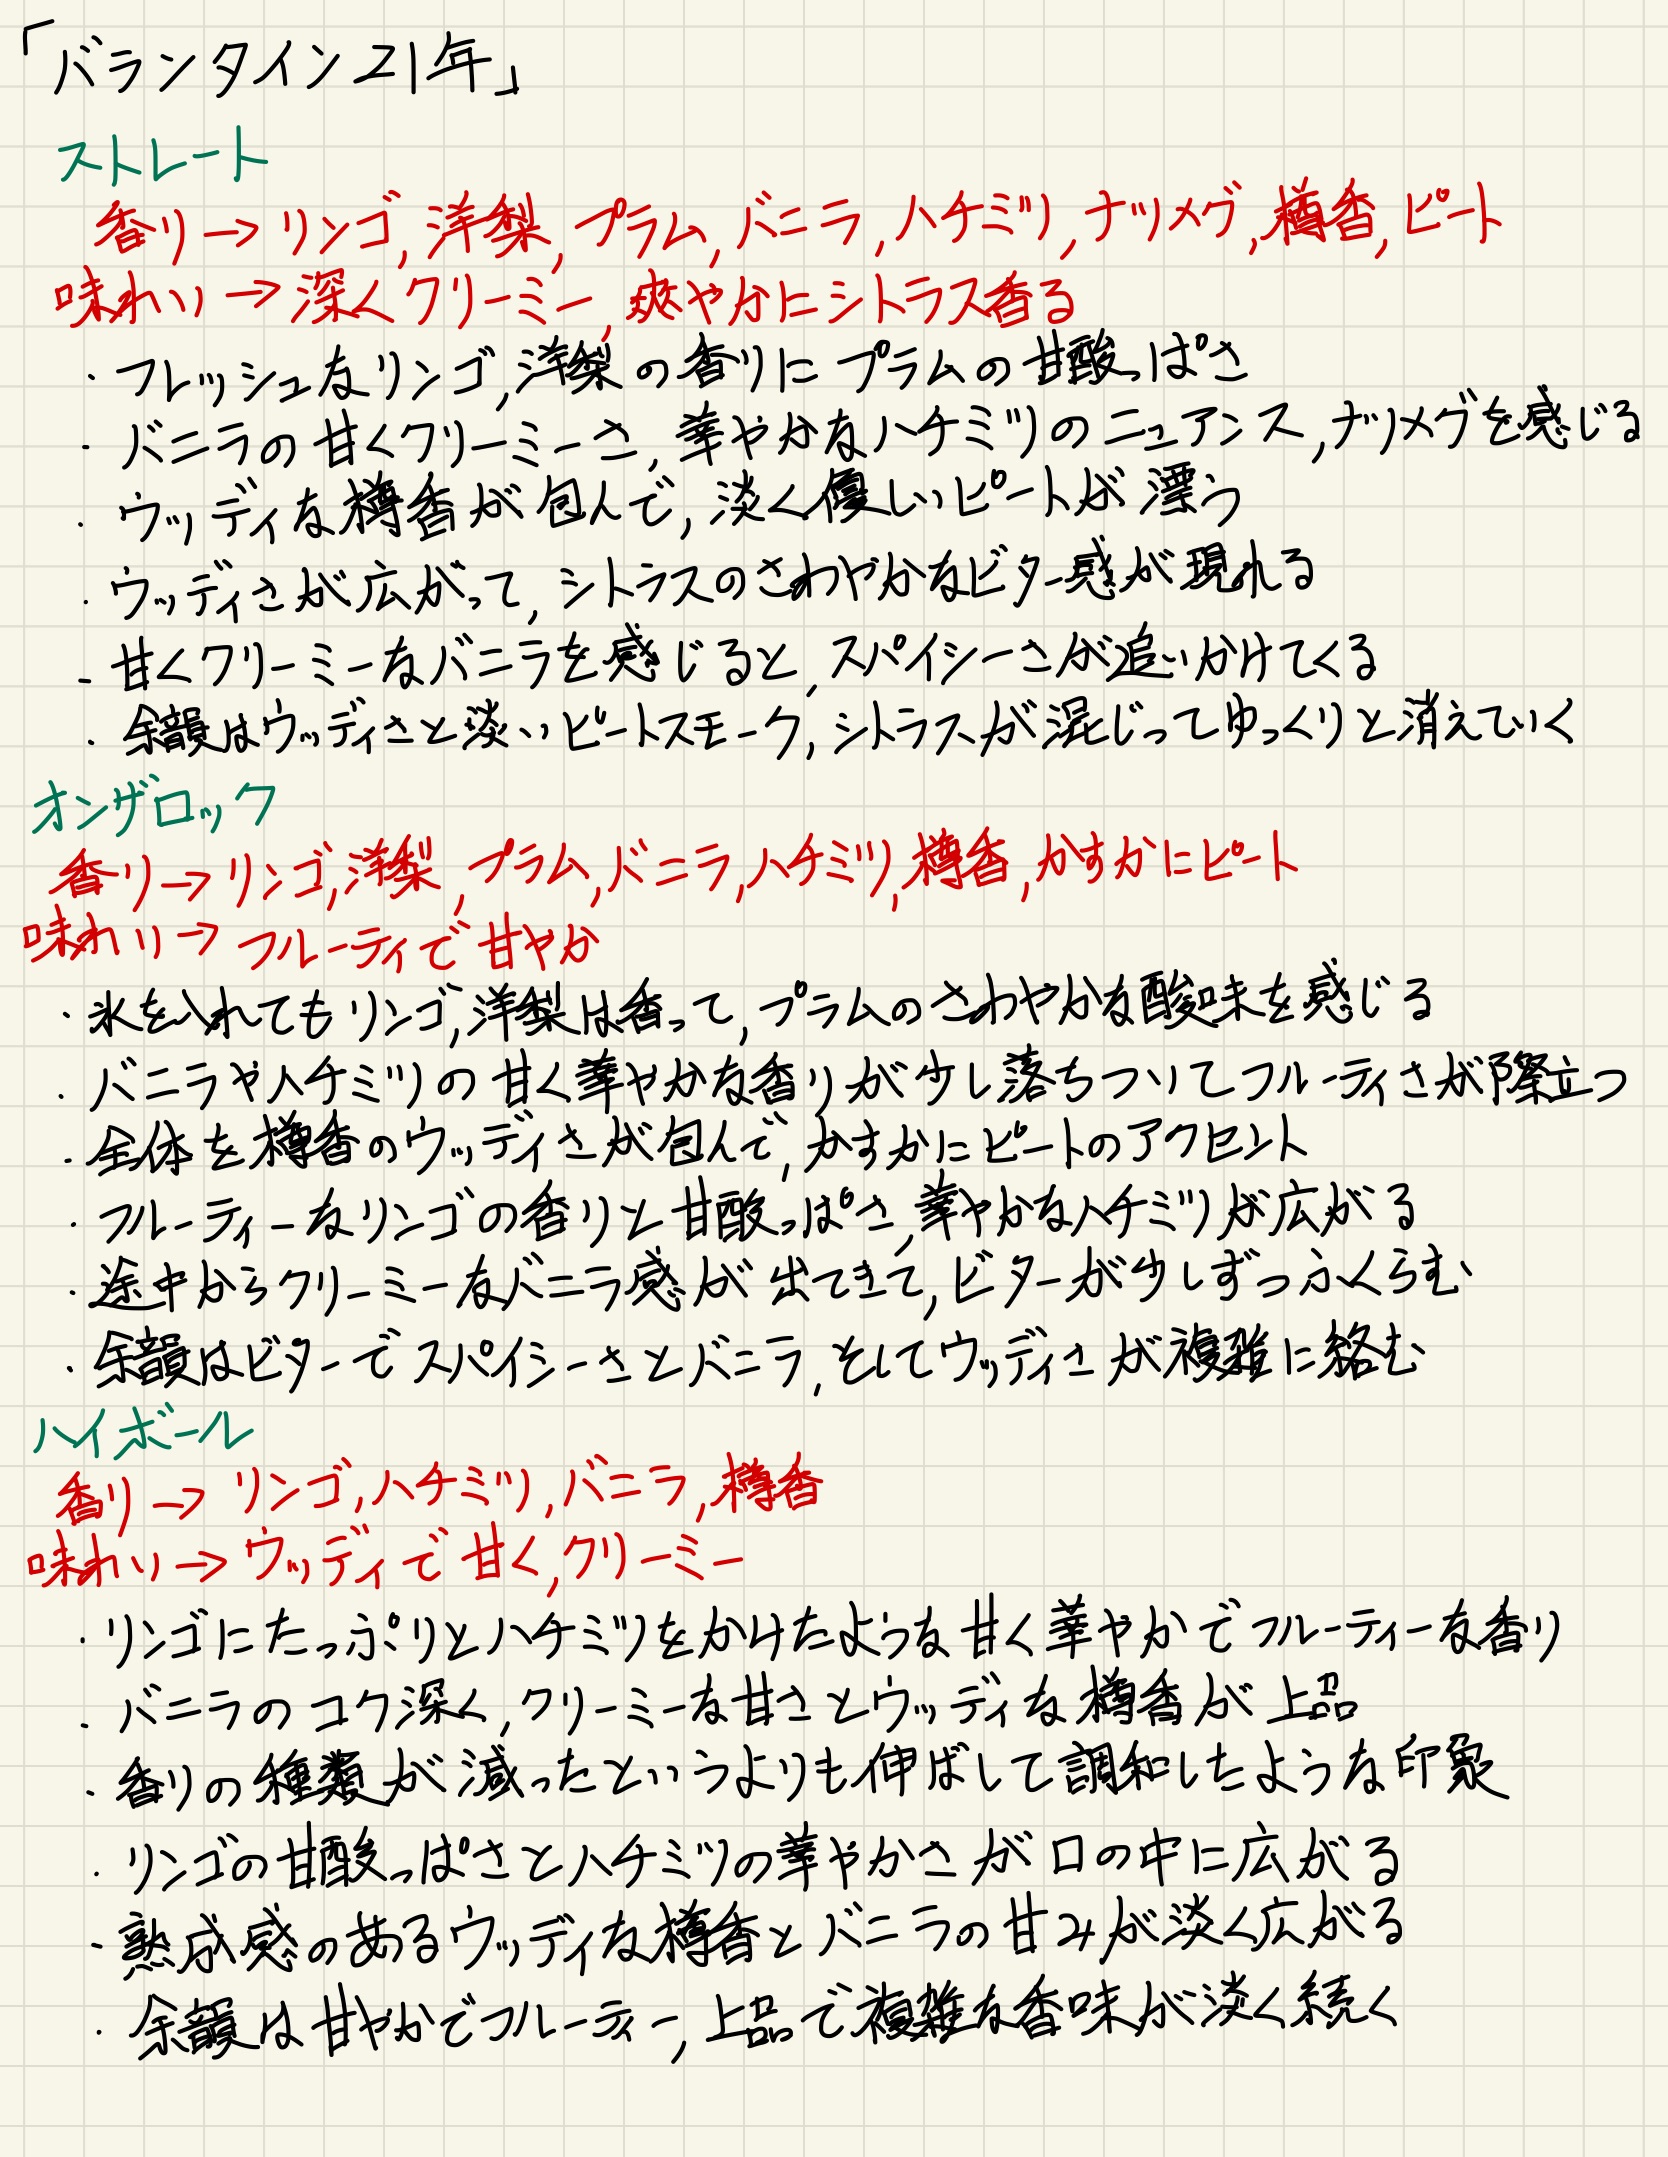 「バランタイン21年」
ストレート
香り→リンゴ,洋梨,プラム,バニラ,ハチミツ,ナツメグ,樽香,ピート
味わい→深くクリーミー,爽やかにシトラス香る
・フレッシュなリンゴ,洋梨の香りにプラムの甘酸っぱさ
・バニラの甘くクリーミーさ,華やかなハチミツのニュアンス,ナツメグを感じる
・ウッディな樽香が包んで,淡く優しいピートが漂う
・ウッディさが広がって,シトラスのさわやかなビター感が現れる
・甘くクリーミーなバニラを感じると,スパイシーさが追いかけてくる
・余韻はウッディさと淡いピートスモーク,シトラスが混じってゆっくりと消えていく
オンザロック
香り→リンゴ,洋梨,プラム,バニラ,ハチミツ,樽香,かすかにピート
味わい→フルーティで甘やか
・氷を入れてもリンゴ,洋梨は香って,プラムのさわやかな酸味を感じる
・バニラやハチミツの甘く華やかな香りが少し落ちついてフルーティさが際立つ
・全体を樽香のウッディさが包んで,かすかにピートのアクセント
・フルーティーなリンゴの香りと甘酸っぱさ,華やかなハチミツが広がる
・途中からクリーミーなバニラ感が出てきて,ビターが少しずつふくらむ
・余韻はビターでスパイシーさとバニラ,そしてウッディさが複雑に絡む
ハイボール
香り→リンゴ,ハチミツ,バニラ,樽香
味わい→ウッディで甘く,クリーミー
・リンゴにたっぷりとハチミツをかけたような甘く華やかでフルーティーな香り
・バニラのコク深く,クリーミーな甘さとウッディな樽香が上品
・香りの種類が減ったというよりも伸ばして調和したような印象
・リンゴの甘酸っぱさとハチミツの華やかさが口の中に広がる
・熟成感のあるウッディな樽香とバニラの甘みが淡く広がる
・余韻は甘やかでフルーティー,上品で複雑な香味が淡く続く